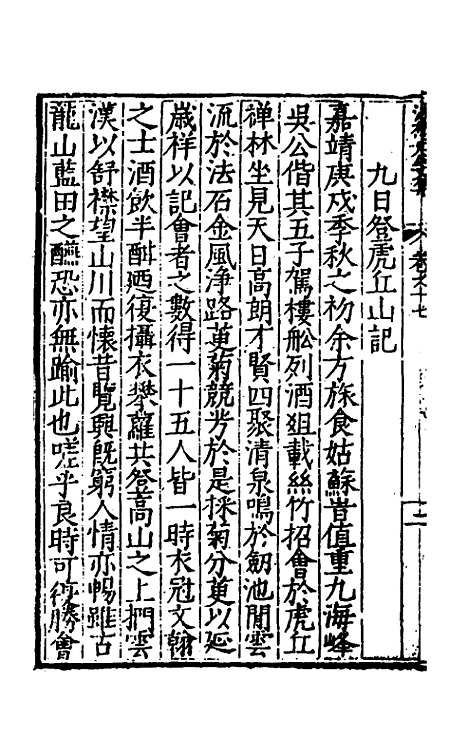 九日登虎丘山記
嘉靖庚戌季秋之初余方旅食姑蘇旹值重九海峰
吳公偕其五子駕樓舩列酒俎載絲竹招會於虎丘
禅林坐見天日高朗才賢四聚清泉鳴於劒池閒雲
流於法石金風浄路茰菊競芳於是採菊分茰以延
嵗祥以記會者之數得一十五人皆一時衣冠文翰
之士酒飲半酣廼復攝衣攀蘿共登髙山之上捫雲
漢以舒襟望山川而懷昔覽興既窮人情亦暢雖古
龍山藍田之醼恐亦無踰此也嗟乎良時可得勝會
卷之十七